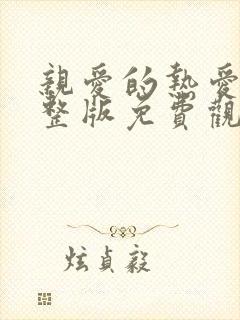 親愛的熱愛
整版免費觀
炫貞毅